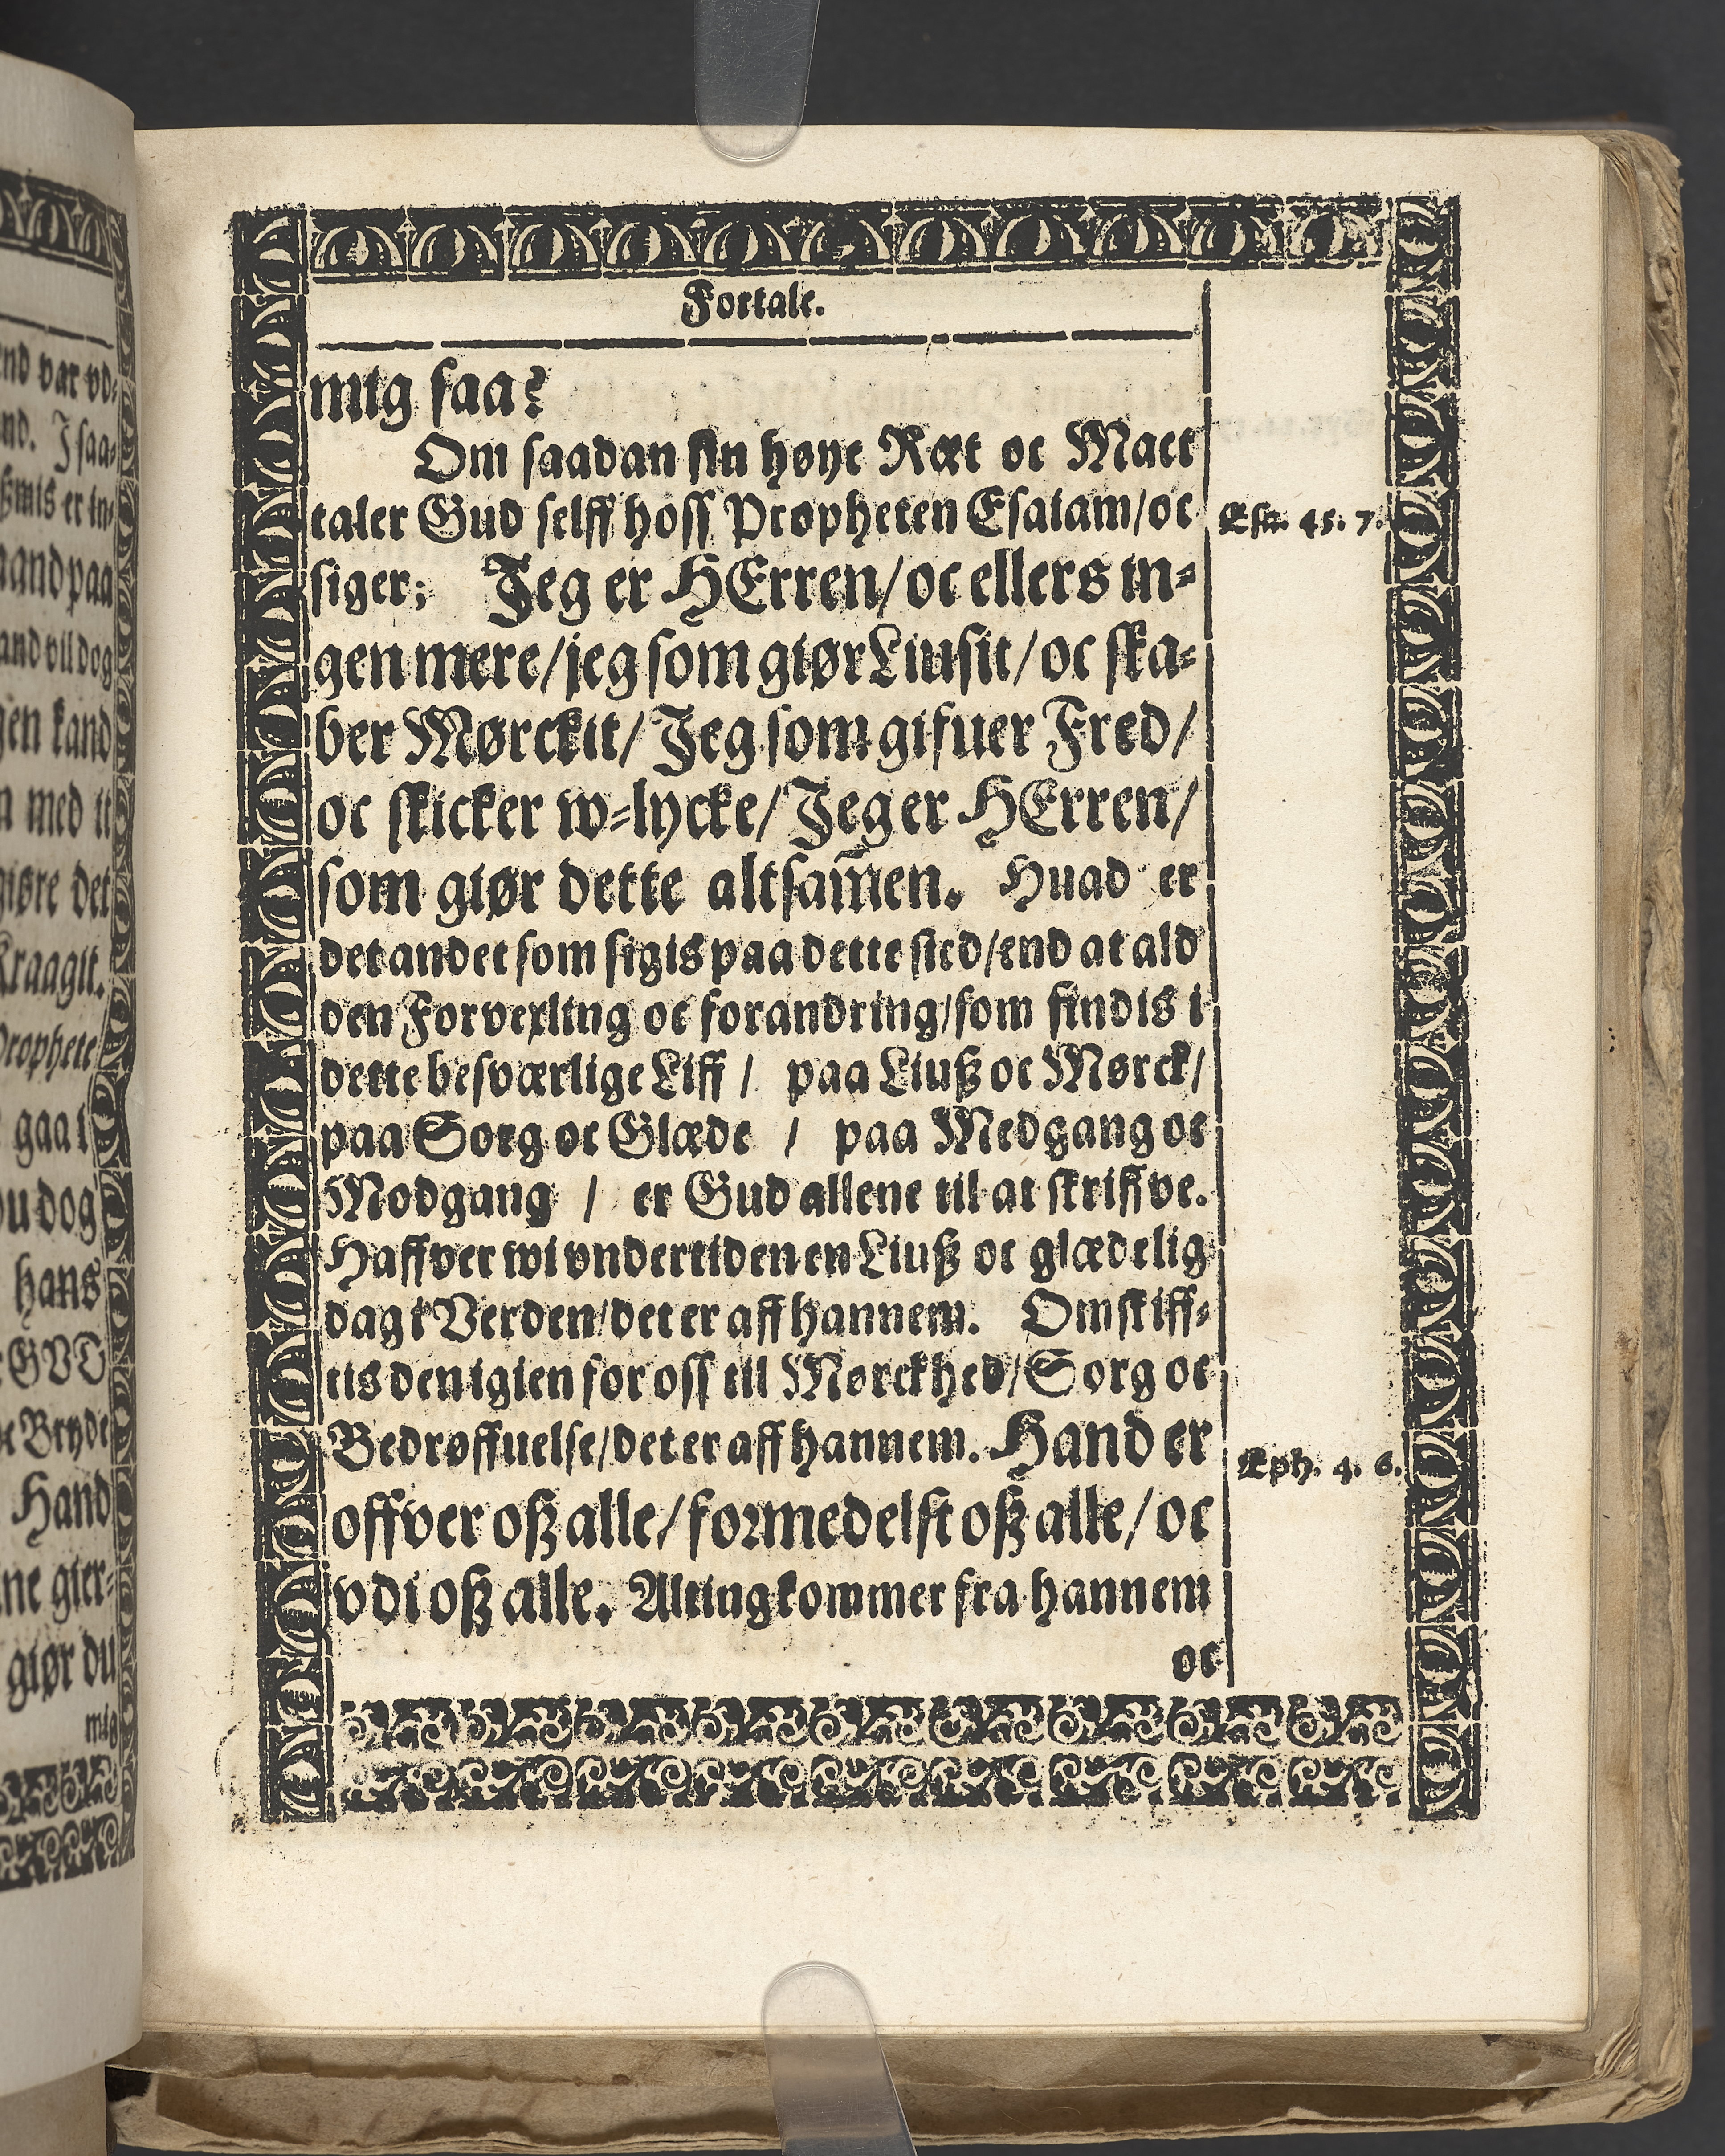 Fortale.
mig saa?
Om saadan sin høye Ræt oc Mact
taler Gud selff hoss Propheten Esaiam/oc
Esa. 45. 7.
siger; Jeg er HErren/oc ellers in⸗
gen mere/jeg som giør Liusit/oc ska⸗
ber Mørckit/Jeg som gifuer Fred/
oc skicker w⸗lycke/Jeg er HErren/
som giør dette altsam̃en. Huad er
det andet som sigis paa dette sted/end at ald
den Forvexling oc forandring/som findis i
dette besværlige Liff / paa Liuß oc Mørck/
paa Sorg oc Glæde / paa Medgang oc
Modgang / er Gud allene til at skriffve.
Haffver wi vndertiden en Liuß oc glædelig
dag i Verden/det er aff hannem. Omskiff⸗
tis den igien for oss till Mørckhed/Sorg oc
Bedrøffuelse/det er aff hannem. Hand er
Eph. 4. 6.
offver oß alle/formedelst oß alle/oc
vdi oß alle. Alting kommer fra hannem
oc
nd.
paa
med it
giøre det
Kraagit.
gaa i
hans
GVD
Hand
giør du
mig